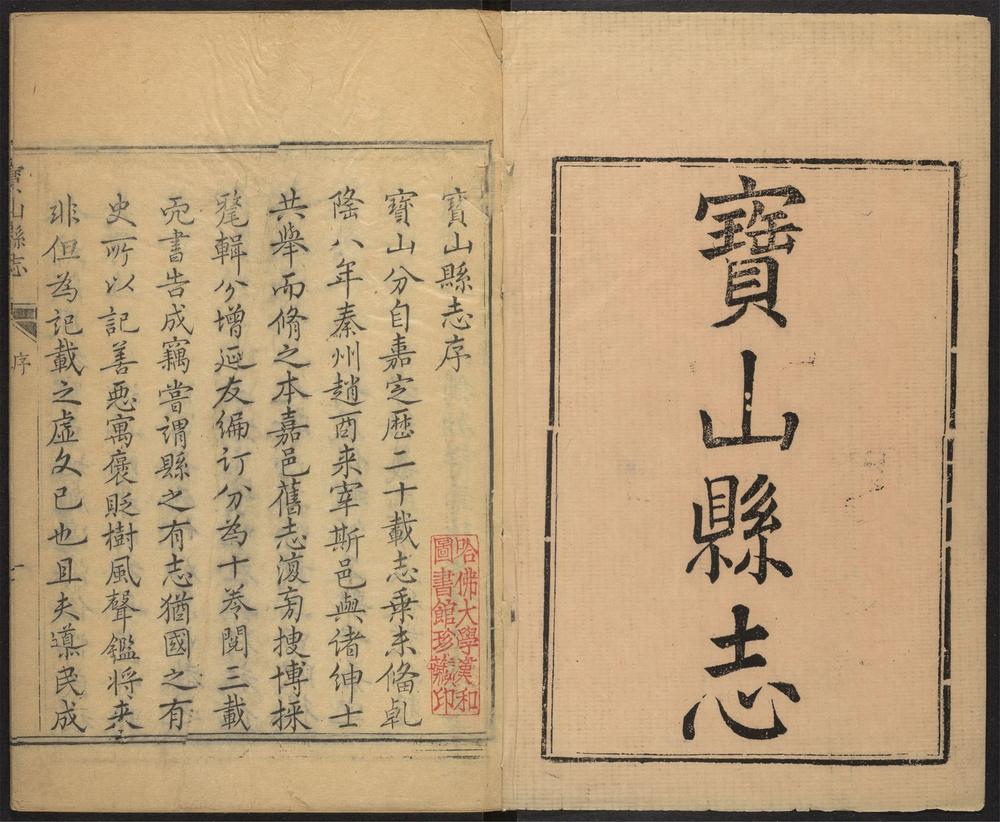 寶山縣志
寶山縣志序
寶山分自嘉定歷二十載志乗未備乹
隆八年秦州趙酉来宰斯邑與諸紳士
共舉而脩之本嘉邑舊志復旁搜博採
鼇輯分增延友编订分為十卷閱三載
而書告成竊嘗謂縣之有志猶國之有
史所以記善惡寓褒貶樹風聲鑑将来
非但為記載之虛文已也且夫導民成
哈佛大學漢和
圖書館珍藏印
寶山縣志
序
一